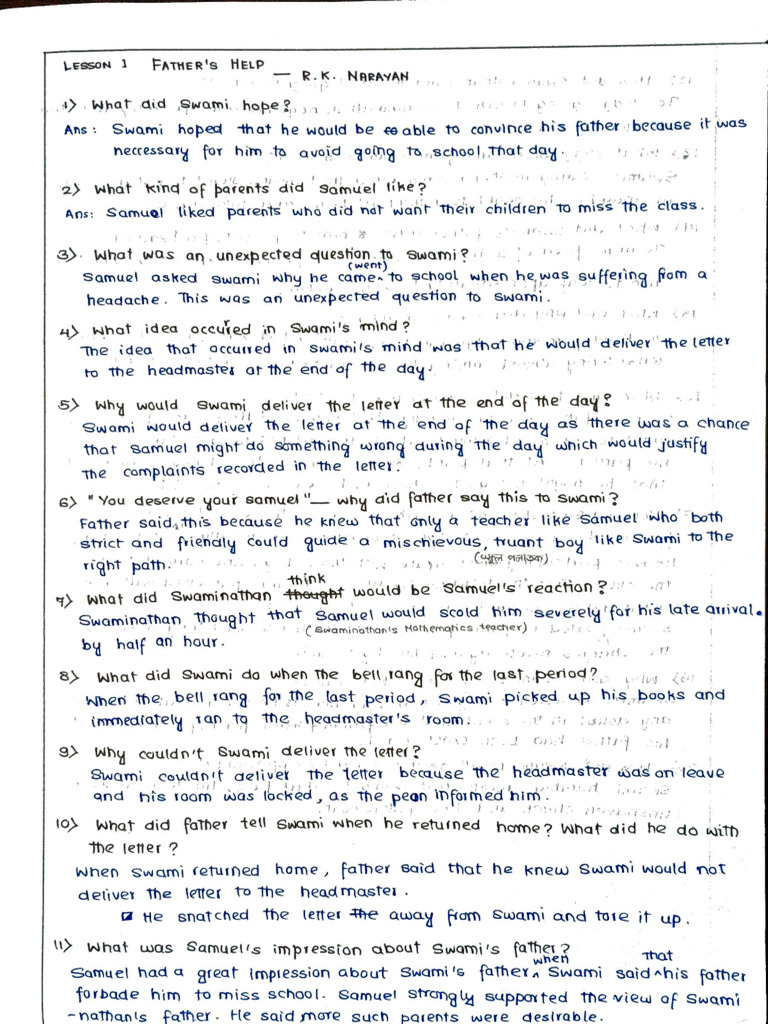 LESSON 1 FATHER'S HELP
— R.K. NARAYAN
1) What did Swami hope?
Ans: Swami hoped that he would be able to convince his father because it was
neccessary for him to avoid going to school, that day.
2) What kind of parents did Samuel like?
Ans: Samuel liked parents who did not want their children to miss the class.
3) What was an unexpected question to Swami?
(went)
Samuel asked Swami why he came^ to school when he was suffering from a
headache. This was an unexpected question to Swami.
4) What idea occured in Swami's mind?
The idea that occured in Swami's mind was that he would deliver the letter
to the headmaster at the end of the day.
5) Why would Swami deliver the letter at the end of the day?
Swami would deliver the letter at the end of the day as there was a chance
that Samuel might do something wrong during the day which would justify
the complaints recorded in the letter.
6) "You deserve your Samuel" — why did father say this to Swami?
Father said, this because he knew that only a teacher like Samuel who both
strict and friendly could guide a mischievous, truant boy like Swami to the
right path.
think
7) What did Swaminathan thought would be Samuel's reaction?
Swaminathan thought that Samuel would scold him severely for his late arrival.
(Swaminathan's Mathematics teacher)
by half an hour.
8) What did Swami do when the bell rang for the last period?
When the bell rang for the last period, Swami picked up his books and
immediately ran to the headmaster's room.
9) Why couldn't Swami deliver the letter?
Swami couldn't deliver the letter because the headmaster was on leave
and his room was locked, as the peon informed him.
10) What did father tell Swami when he returned home? What did he do with
the letter?
When Swami returned home, father said that he knew Swami would not
deliver the letter to the headmaster.
He snatched the letter the away from Swami and tore it up.
11) What was Samuel's impression about Swami's father?
when that
Samuel had a great impression about Swami's father^ Swami said ^his father
forbade him to miss school. Samuel strongly supported the view of Swami
-nathan's father. He said more such parents were desirable.